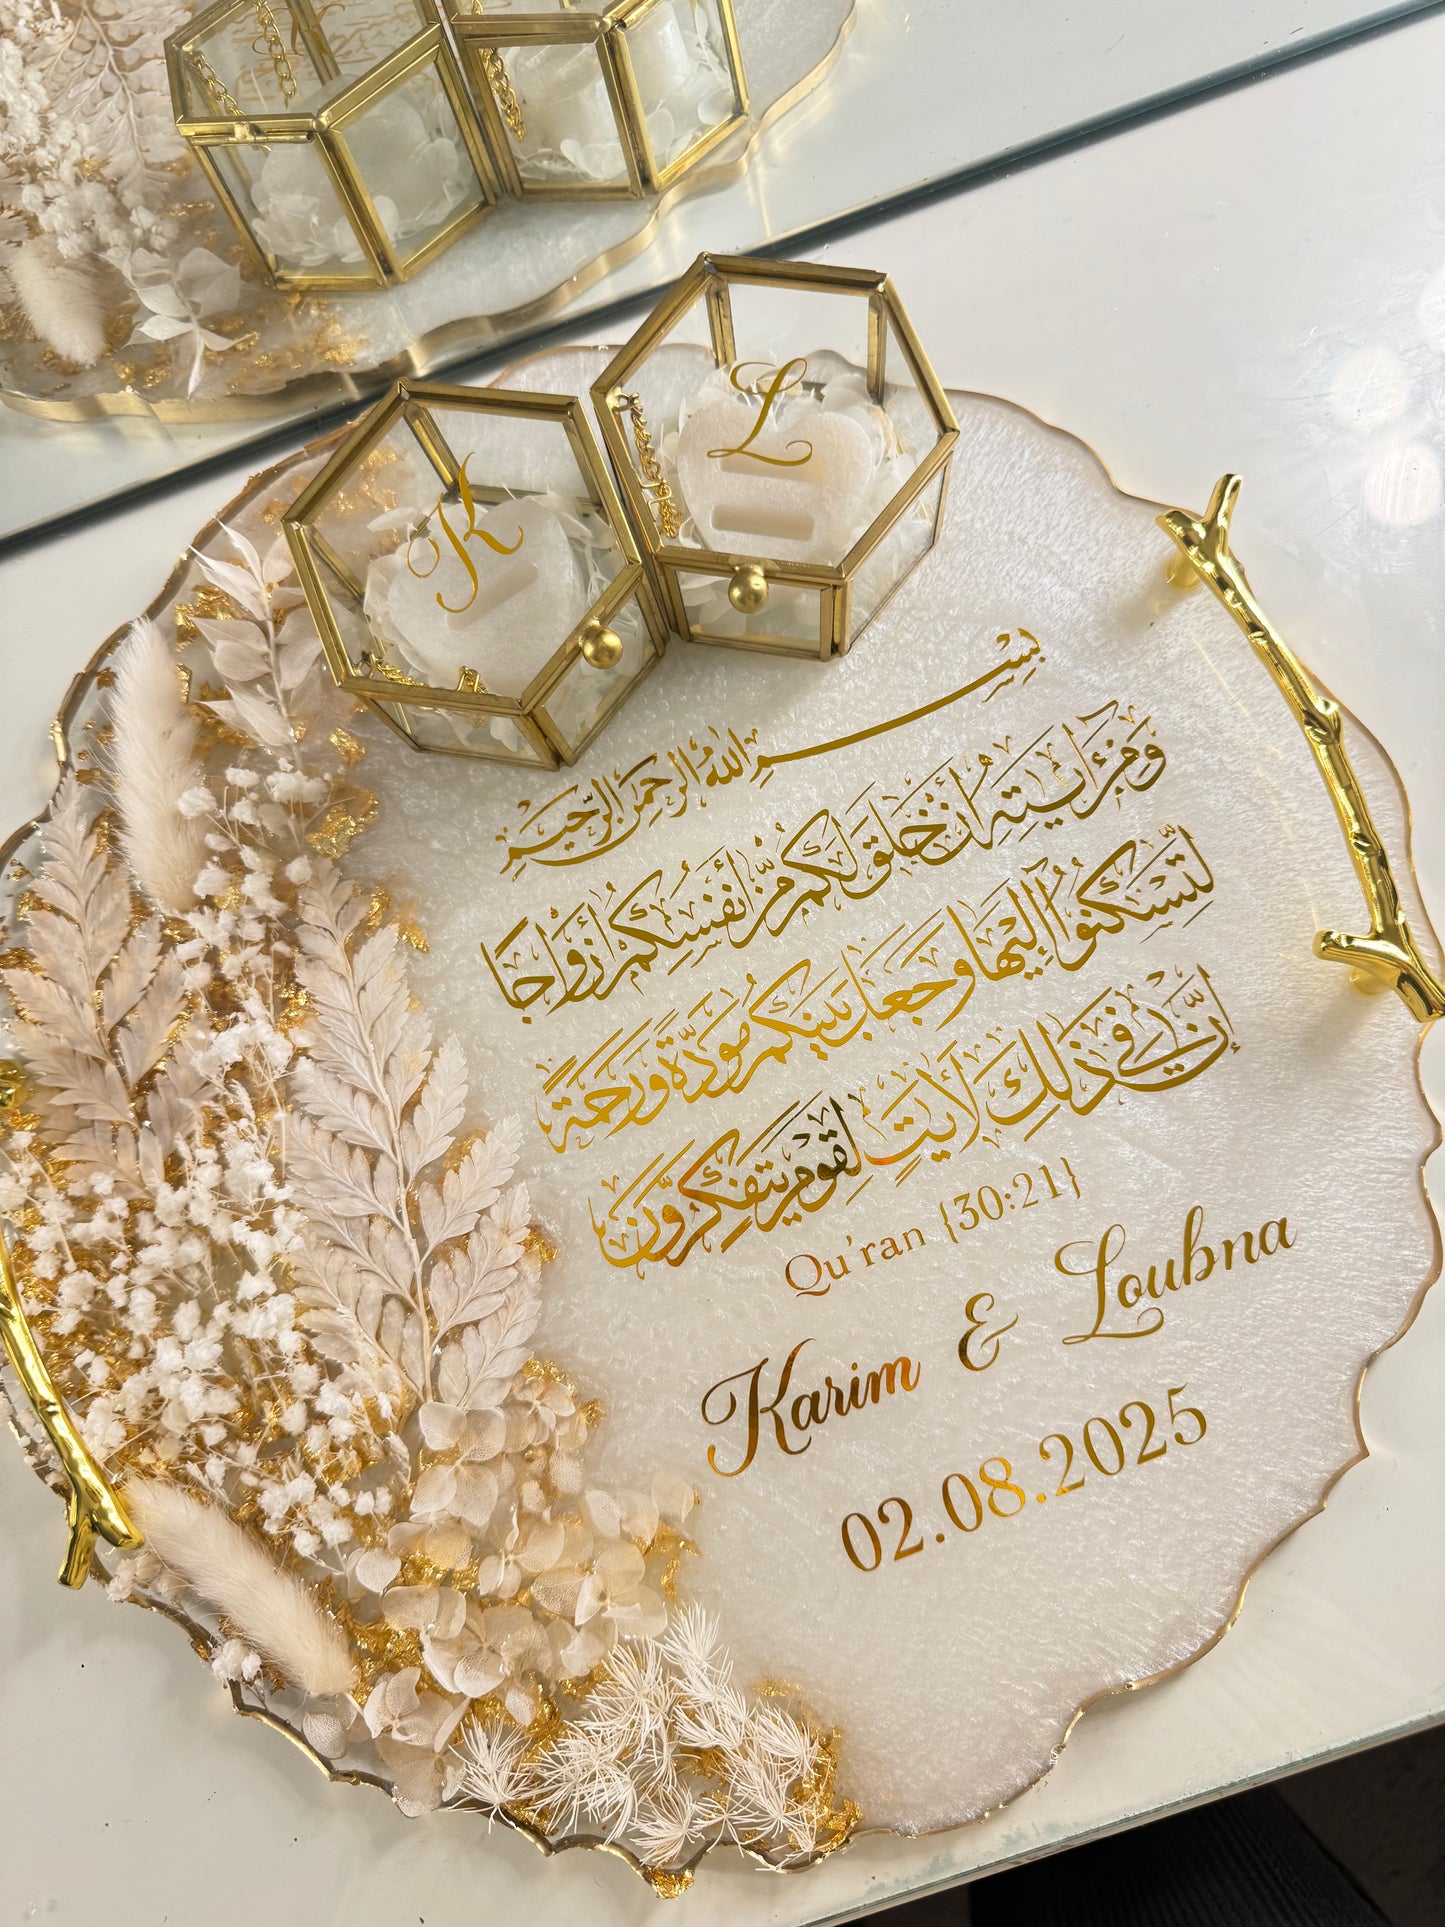 K
L
بِسْمِ اللهِ الرَّحْمٰنِ الرَّحِيْمِ
وَمِنْ ءَايَـٰتِهِۦٓ أَنْ خَلَقَ لَكُم مِّنْ أَنفُسِكُمْ أَزْوَٰجًا
لِّتَسْكُنُوٓا۟ إِلَيْهَا وَجَعَلَ بَيْنَكُم مَّوَدَّةً وَرَحْمَةً
إِنَّ فِى ذَٰلِكَ لَـَٔايَـٰتٍ لِّقَوْمٍ يَتَفَكَّرُونَ
Qu'ran {30:21}
Karim & Loubna
02.08.2025